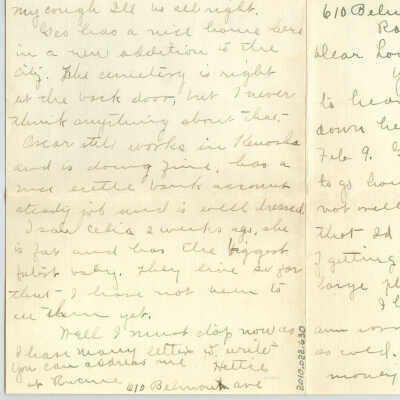 my cough I'll be all right.
Geo has a nice home here
in a new addition to the
city. The cemetery is right
at the back door, but I never
think anything about that.
Oscar still works in Kenosha
and is doing fine. has a
nice little bank account
steady job and is well dressed.
I saw Celia 2 weeks ago, she
is fat and has the biggest
fattest baby. They live so far
that I have not been to
see them yet.
Well I must stop now as
I have many letters to write
you can address me Hettie
at Racine 610 Belmont ave
2010.022.630
610 Belmo
Ra
Dear Lou
to hear
down he
Feb 9.
to go hom
not well
that Id
I getting
large pl
as well.
money